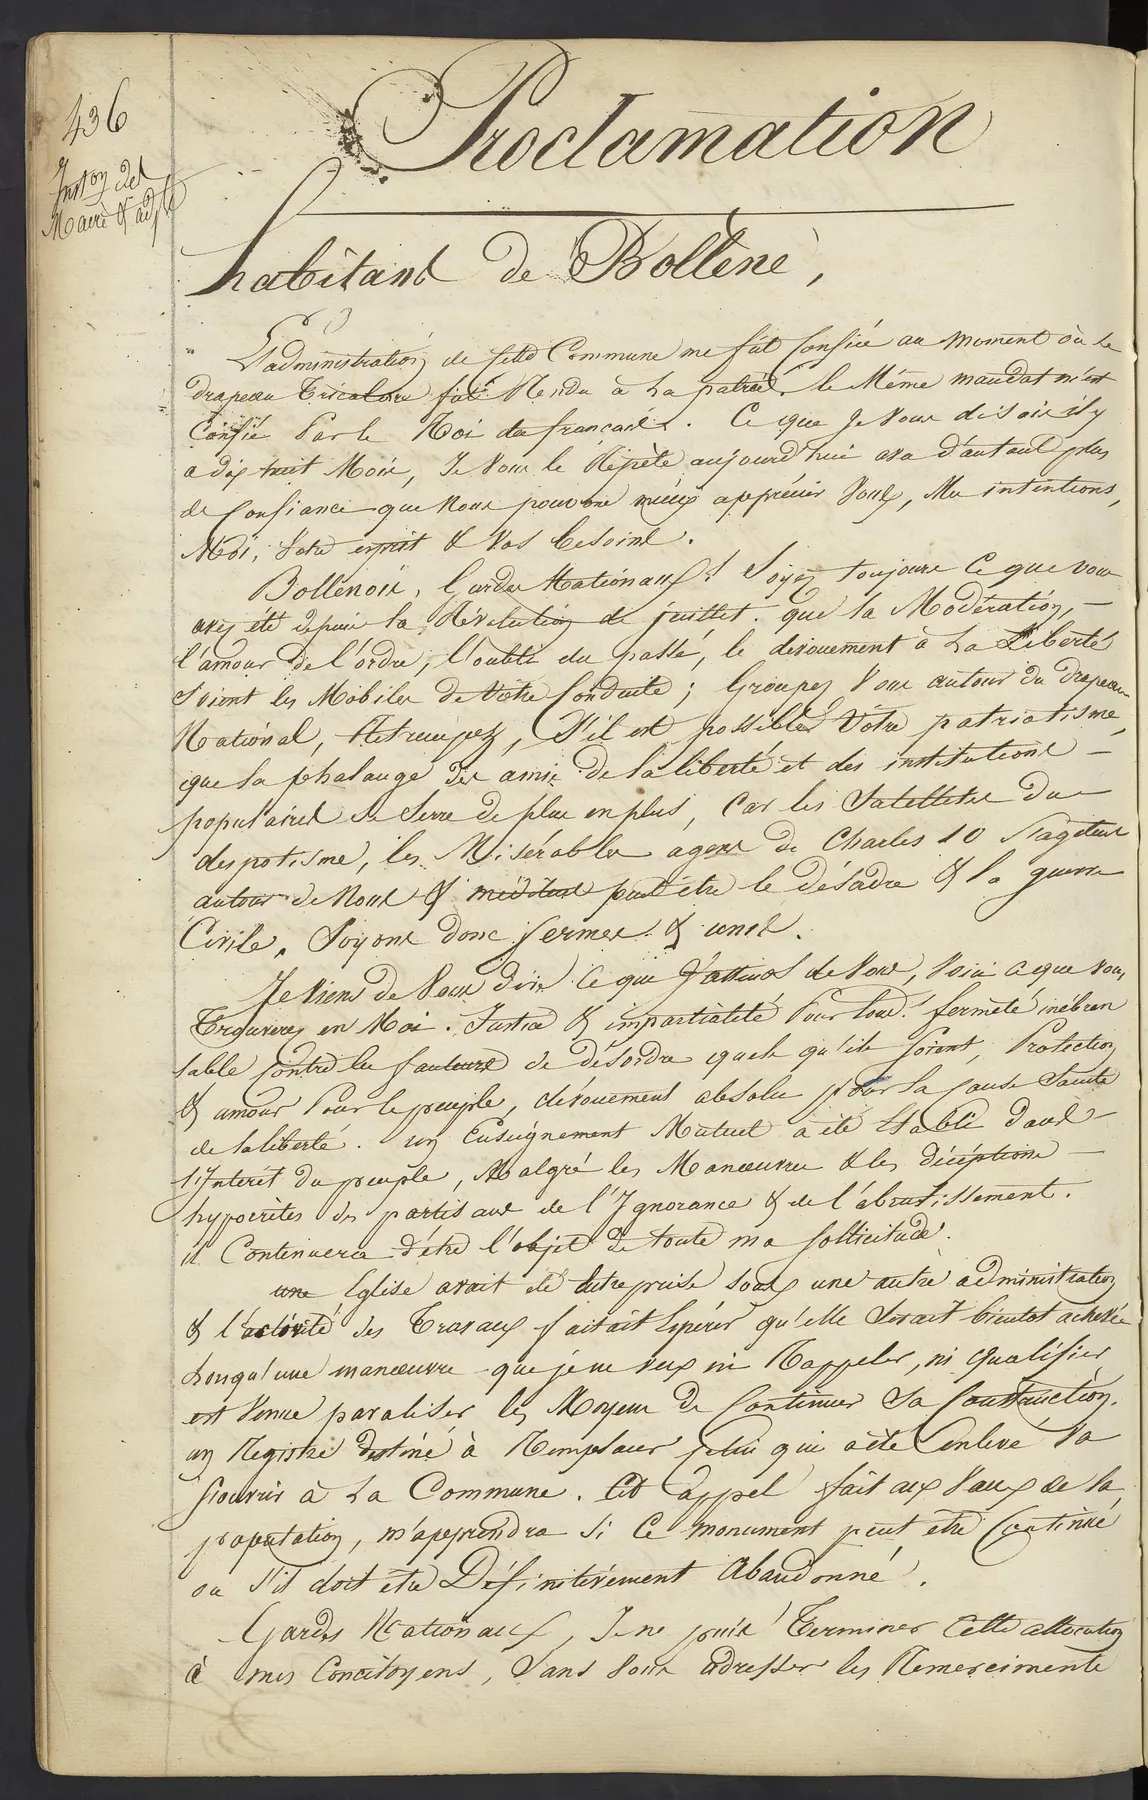 436
Inston des
Maire & adjt
Proclamation
habitant de Bollène,
L'administration de cette Commune me fût Confiée au moment où le
drapeau tricolore fût Rendu à La patrie, le Même mandat m'est
Confié Par le Roi des français. Ce que Je Vous disois il y
a dix huit Mois, Je Vous le Répète aujourd'hui avec d'autant plus
de Confiance que Nous pouvons mieux apprécier Vous, Mes intentions,
Moi, Votre esprit & Vos besoins.
Bollenois, Gardes Nationaux! Soyez toujours Ce que vous
avez été depuis la Révolution de juillet. que la Modération,
l'amour de l'ordre, l'oubli du passé, le dévouement à La Liberté
Soient les Mobiles de Votre Conduite; Groupez Vous autour du drapeau
National, Retrempez, S'il est possible, Votre patriotisme,
que la phalange des amis de la liberté et des institutions
populaires Se Serre de plus en plus, Car les Satellites du
despotisme, les Misérables agens de Charles 10 S'agitent
autour de Nous & méditent peut être le désordre & la guerre
Civile. Soyons donc fermes & unis.
Je Viens de Vous dire Ce que J'attends de Vous, Voici ce que vous
Trouverez en Moi. Justice & impartialité Pour tous. fermeté inébran
lable Contre les fauteurs de désordre quels qu'ils Soient, Protection
& amour Pour le peuple, dévouement absolu pour la Cause Sainte
de la liberté. un Enseignement Mutuel a été établi dans
l'Interêt du peuple, Malgré les Manœuvres & les déceptions
hypocrites des partisans de l'Ignorance & de l'abrutissement.
il Continuera d'être l'objet de toute ma Sollicitude.
une Eglise avait été Entreprise sous une autre administration
& l'activité des Travaux faisait Espérer qu'elle Serait bientot achevée
Lorsqu'une manœuvre que je ne veux ni Rappeler, ni Qualifier
est Venue paraliser les Moyens de Continuer Sa Construction.
un Registre destiné à Remplacer Celui qui a été Enlevé Va
S'ouvrir à La Commune. Cet appel fait aux Vœux de la
population, m'apprendra Si Ce monument peut être Continué
ou S'il doit être Définitivement Abandonné.
Gardes Nationaux, Je ne puis Terminer Cette allocution
à mes Concitoyens, Sans Vous adresser les Remerciments